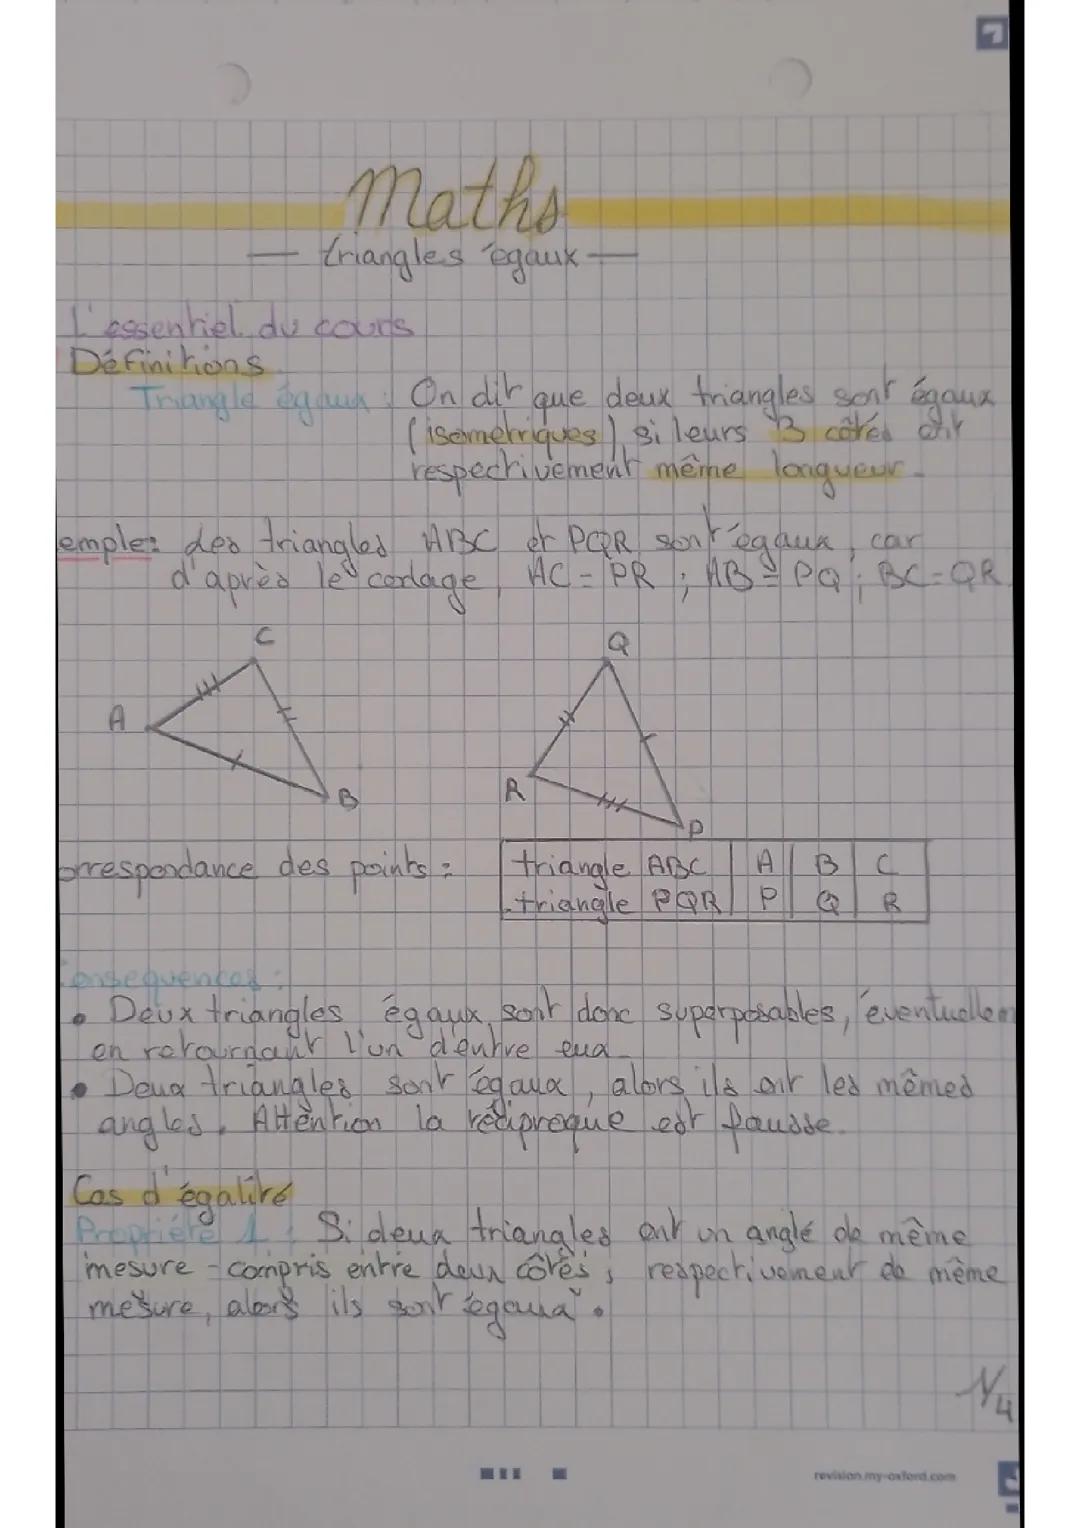 Maths
— triangles égaux —
L'essentiel du cours
Définitions
Triangle égaux : On dit que deux triangles sont égaux
(isométriques) si leurs 3 côtés ont
respectivement même longueur.
emple: des triangles ABC et PQR sont égaux, car
d'après le codage, AC = PR ; AB = PQ ; BC = QR
C
Q
A
B
R
P
orrespondance des points :
triangle ABC | A | B | C
triangle PQR | P | Q | R
onsequences :
• Deux triangles égaux sont donc superposables, éventuellem
en retournant l'un d'entre eux
• Deux triangles sont égaux, alors ils ont les mêmes
angles. Attention la réciproque est fausse.
Cas d'égalité
Propriété 1 : Si deux triangles ont un angle de même
mesure - compris entre deux côtés, respectivement de même
mesure, alors ils sont égaux.
1/4
revision.my-oxford.com